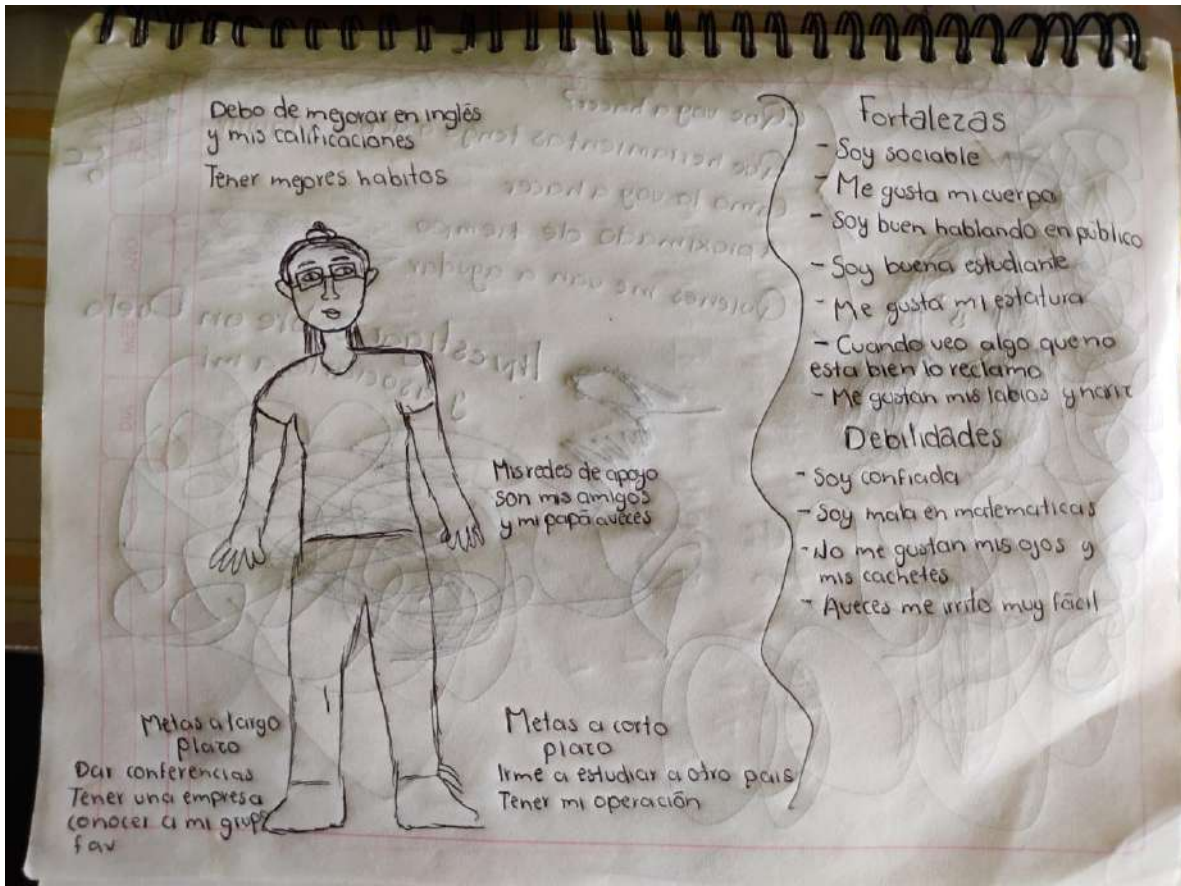 Debo de megorar en inglés
y mis calificaciones
Tener megores habitos
Mis redes de apoyo
son mis amigos
y mi papá aveces
Metas a largo
plazo
Dar conferencias
Tener una empresa
conocer a mi grupo
fav
Metas a corto
plazo
Irme a estudiar a otro pais
Tener mi operación
Fortalezas
- Soy sociable
- Me gusta mi cuerpo
- Soy buen hablando en público
- Soy buena estudiante
- Me gusta mi estatura
- Cuando veo algo que no
esta bien lo reclamo
- Me gustan mis labios y nariz
Debilidades
- Soy confiada
- Soy mala en matematicas
- No me gustan mis ojos y
mis cachetes
- Aveces me irrito muy fácil